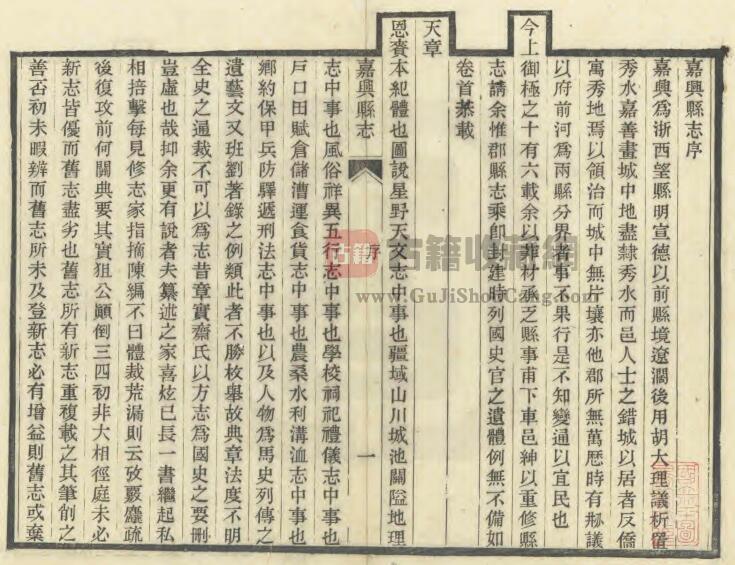 嘉興縣志序
嘉興為浙西望縣明宣德以前縣境遼濶後用胡大理議析置
秀水嘉善畫城中地盡隸秀水而邑人士之錯城以居者反僑
寓秀地焉以領治而城中無片壤亦他郡所無萬厯時有剏議
以府前河為兩縣分界者事不果行是不知變通以宜民也
今上御極之十有六載余以菲材承乏縣事甫下車邑紳以重修縣
志請余惟郡縣志乘卽封建時列國史官之遺體例無不備如
卷首恭載
天章
恩賚本紀體也圖說星野天文志中事也疆域山川城池關隘地理
嘉興縣志
序
一
志中事也風俗祥異五行志中事也學校祠祀禮儀志中事也
戶口田賦倉儲漕運食貨志中事也農桑水利溝洫志中事也
鄉約保甲兵防驛遞刑法志中事也以及人物為馬史列傳之
遺藝文又班劉著錄之例類此者不勝枚舉故典章法度不明
全史之通裁不可以為志昔章實齋氏以方志為國史之要刪
豈虛也哉抑余更有說者夫纂述之家喜炫已長一書繼起私
相掊擊每見修志家指摘陳編不曰體裁荒漏則云攷覈麤疏
後復攻前何關典要其實狙公顚倒三四初非大相徑庭未必
新志皆優而舊志盡劣也舊志所有新志重複載之其筆削之
善否初未暇辨而舊志所未及登新志必有增益則舊志或棄
古籍
古籍收藏網
www.GuJiShouCang.com